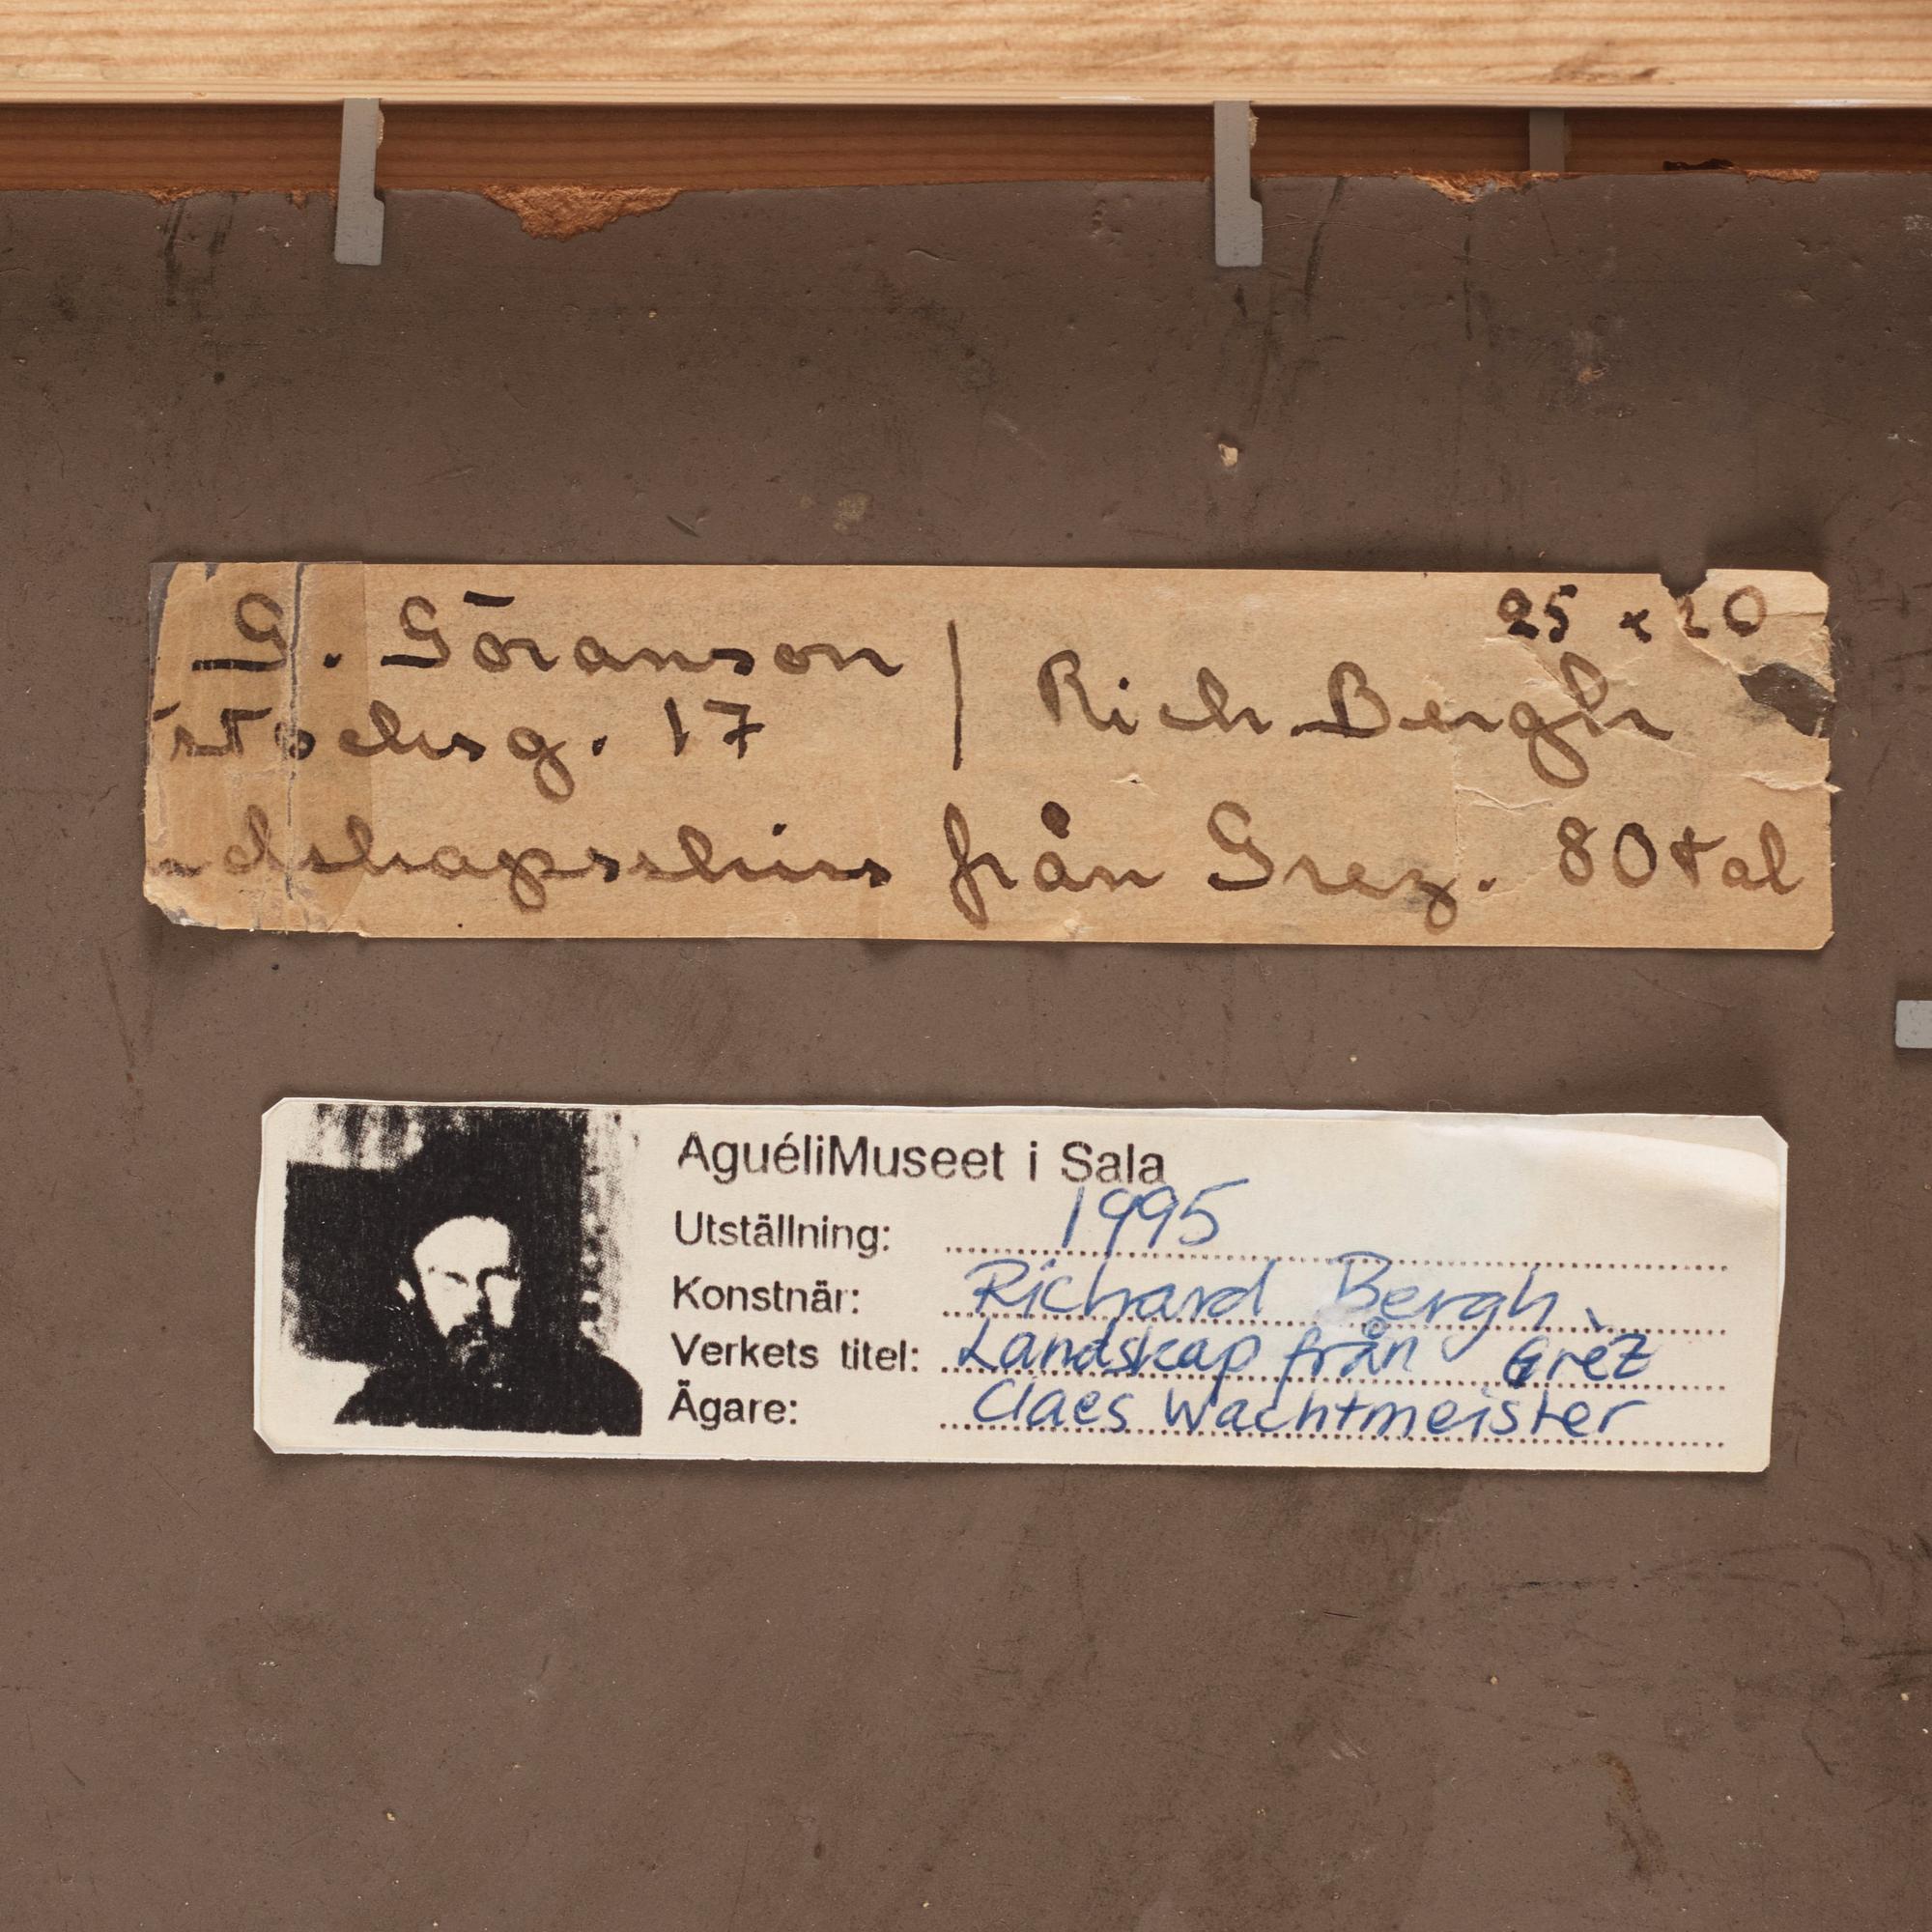 G. Göranson
Rich. Bergh
25 x 20
17
från Grez. 80tal
AguéliMuseet i Sala
Utställning: 1995
Konstnär: Richard Bergh
Verkets titel: Landskap från Grèz
Ägare: Claes Wachtmeister